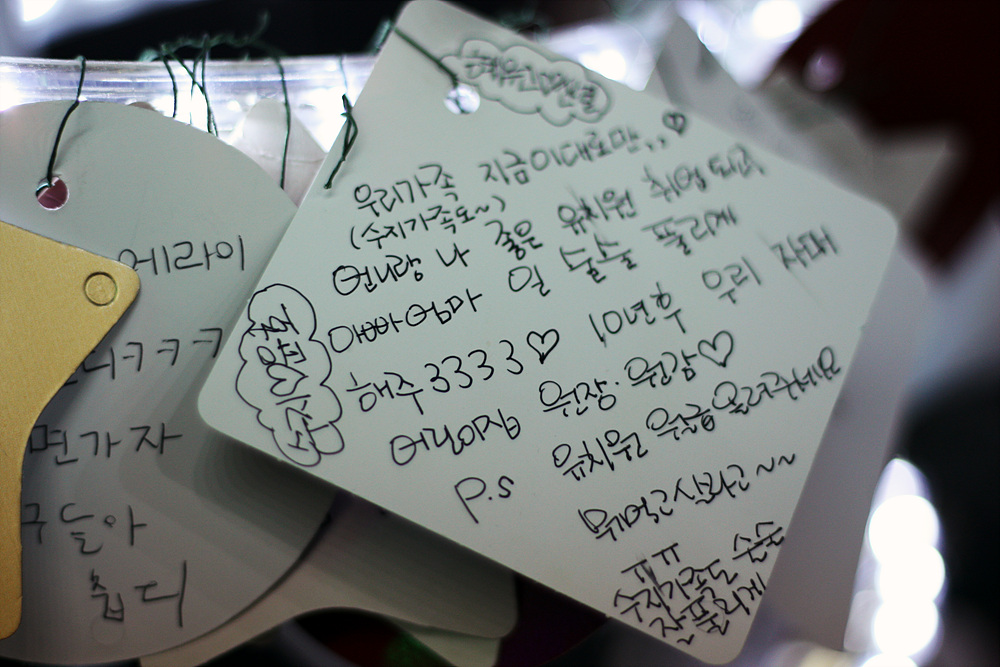 우리가족 지금이대로만,, ♡
(수지가족도~)
언니랑 나 좋은 유치원 취업되라
아빠 엄마 일 술술 풀리게
해주3333♡ 10년후 우리 자매
어린이집 원장·원감♡
P.S 유치원 월급올려주세요
뭐먹고살라고~~
ㅠㅠ
수지가족도 술술
잘풀리게
에라이
디ㅋㅋㅋ
면가자
구들아
춥디